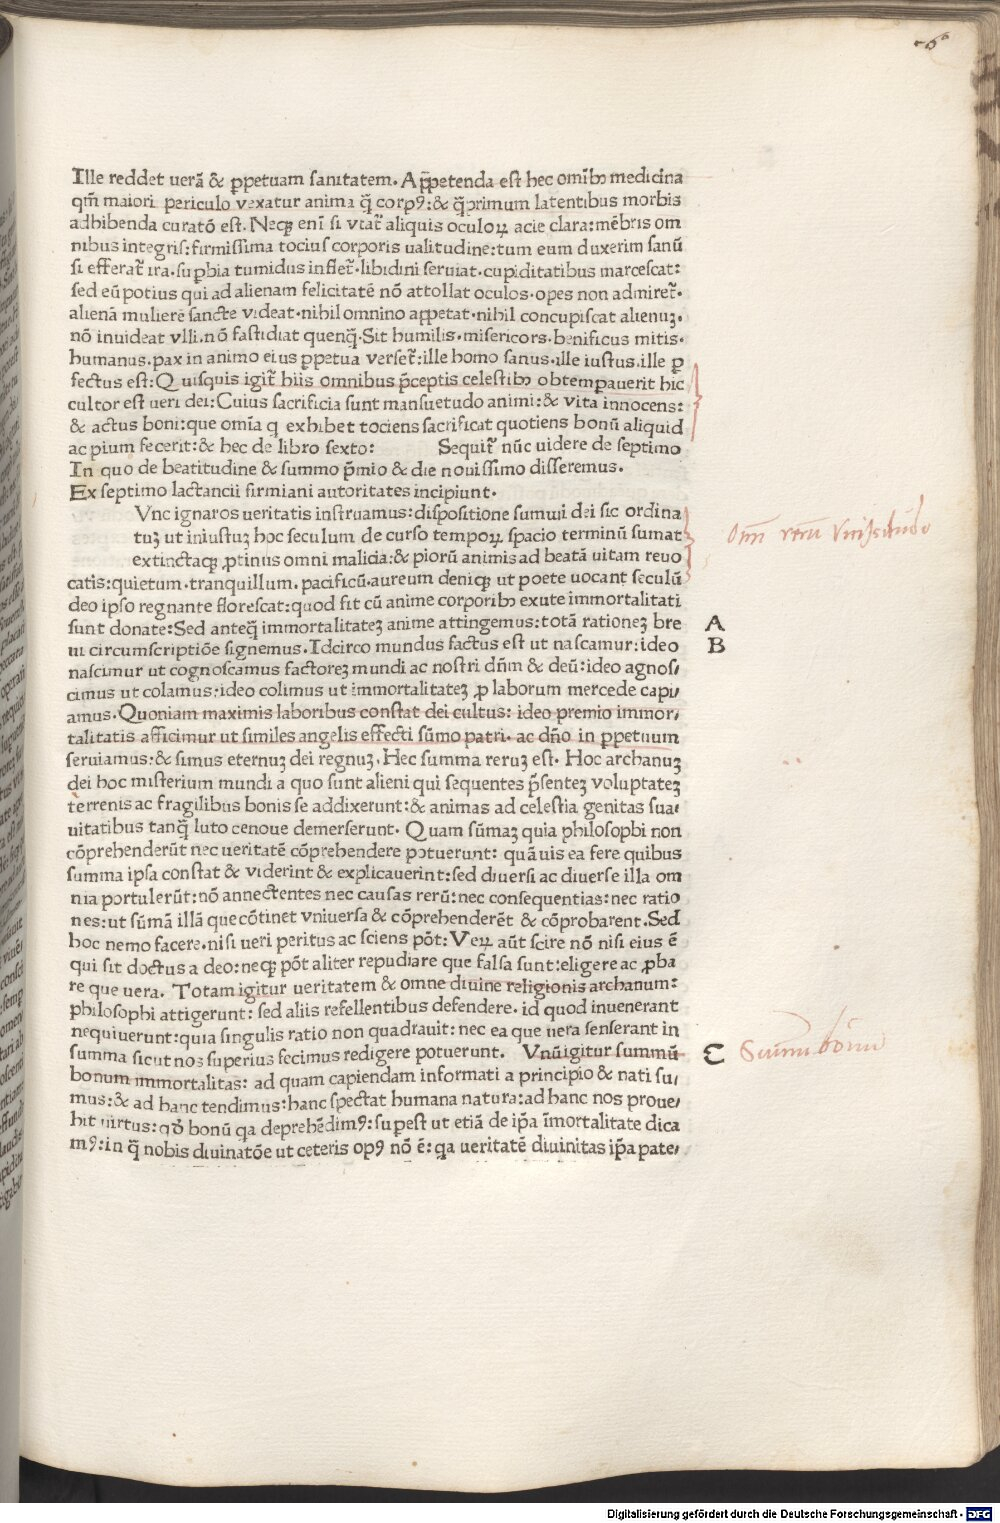 Ille reddet uerā & ꝑpetuam sanitatem. App̄etenda est hec omībꝫ medicina
qm̄ maiori periculo vexatur anima q̄ꝫ corpꝰ: & q̄ꝫprimum latentibus morbis
adhibenda curatō est. Neqꝫ enī si vtat᷑ aliquis oculoꝝ acie clara: mēbris om
nibus integris: firmissima tocius corporis ualitudine: tum eum duxerim sanū
si efferat᷑ ira. supbia tumidus inflet᷑. libidini seruiat. cupiditatibus marcescat:
sed eū potius qui ad alienam felicitatē nō attollat oculos. opes non admiret᷑.
alienā muliere sancte videat. nihil omnino appetat. nihil concupiscat alienuꝫ.
nō inuideat vlli. nō fastidiat quenq̄ꝫ. Sit humilis. misericors. benificus mitis.
humanus. pax in animo eius ꝑpetua verset᷑: ille homo sanus. ille iustus. ille ꝑ
fectus est: Quisquis igit᷑ hiis omnibus p̄ceptis celestibꝫ obtempauerit hic
cultor est ueri dei: Cuius sacrificia sunt mansuetudo animi: & vita innocens:
& actus boni: que omīa q exhibet tociens sacrificat quotiens bonū aliquid
ac pium fecerit: & hec de libro sexto: Sequit᷑ nūc uidere de septimo
In quo de beatitudine & summo p̄mio & die nouissimo disseremus.
Ex septimo lactancii firmiani autoritates incipiunt.
Vnc ignaros ueritatis instruamus: dispositione summi dei sic ordina
tuꝫ ut iniustuꝫ hoc seculum de curso tempoꝝ spacio terminū sumat
extinctaqꝫ ꝓtinus omni malicia: & piorū animis ad beatā uitam reuo
catis: quietum. tranquillum. pacificū. aureum deniqꝫ ut poete uocant seculū
deo ipso regnante florescat: quod fit cū anime corporibꝫ exute immortalitati
sunt donate: Sed anteq̄ꝫ immortalitateꝫ anime attingemus: totā rationeꝫ bre
A
ui circumscriptiōe signemus. Idcirco mundus factus est ut nascamur: ideo
B
nascimur ut cognoscamus factoreꝫ mundi ac nostri dn̄m & deū: ideo agnos,
cimus ut colamus: ideo colimus ut immortalitateꝫ ꝓ laborum mercede capi,
amus. Quoniam maximis laboribus constat dei cultus: ideo premio immor,
talitatis afficimur ut similes angelis effecti sūmo patri. ac dn̄o in ꝑpetuum
seruiamus: & simus eternuꝫ dei regnuꝫ. Hec summa reruꝫ est. Hoc archanuꝫ
dei hoc misterium mundi a quo sunt alieni qui sequentes p̄senteꝫ voluptateꝫ
terrenis ac fragilibus bonis se addixerunt: & animas ad celestia genitas sua,
uitatibus tanq̄ꝫ luto cenoue demerserunt. Quam sūmaꝫ quia philosophi non
cōprehenderūt nec ueritatē cōprehendere potuerunt: quāuis ea fere quibus
summa ipsa constat & viderint & explicauerint: sed diuersi ac diuerse illa om
nia portulerūt: nō annectentes nec causas rerū: nec consequentias: nec ratio
nes: ut sūmā illā que cōtinet vniuersa & cōprehenderēt & cōprobarent. Sed
hoc nemo facere. nisi ueri peritus ac sciens pōt: Veꝝ aūt scire nō nisi eius ē
qui sit doctus a deo: neqꝫ pōt aliter repudiare que falsa sunt: eligere ac ꝓba
re que uera. Totam igitur ueritatem & omne diuine religionis archanum:
philosophi attigerunt: sed aliis refellentibus defendere. id quod inuenerant
nequiuerunt: quia singulis ratio non quadrauit: nec ea que uera senserant in
summa sicut nos superius fecimus redigere potuerunt. Vnūigitur summū
C Summū bonum
bonum immortalitas: ad quam capiendam informati a principio & nati su,
mus: & ad hanc tendimus: hanc spectat humana natura: ad hanc nos proue,
hit uirtus: qđ bonū qa deprehēdimꝰ: supest ut etiā de ip̄a īmortalitate dica
mꝰ: in q̄ nobis diuinatōe ut ceteris opꝰ nō ē: qa ueritatē diuinitas ip̄a pate,
Digitalisierung gefördert durch die Deutsche Forschungsgemeinschaft - DFG